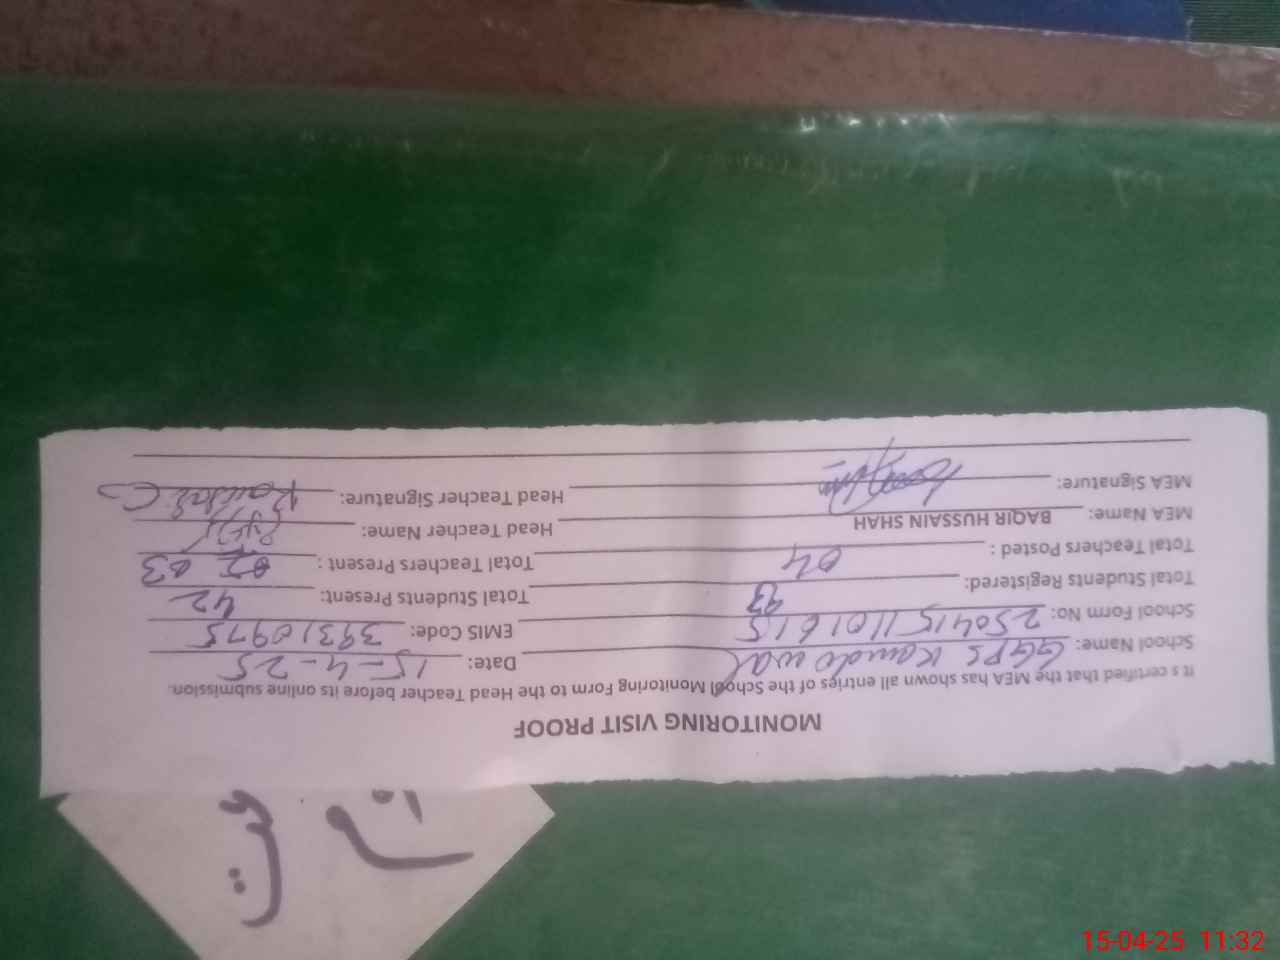 MONITORING VISIT PROOF
It s certified that the MEA has shown all entries of the School Monitoring Form to the Head Teacher before its online submission.
School Name: GGPS Kandowal Date: 15-4-25
School Form No: 2504151101615 EMIS Code: 39310975
Total Students Registered: 93 Total Students Present: 42
Total Teachers Posted : 04 Total Teachers Present : 03
MEA Name: BAQIR HUSSAIN SHAH Head Teacher Name:
MEA Signature: Head Teacher Signature: Kousar
15-04-25 11:32